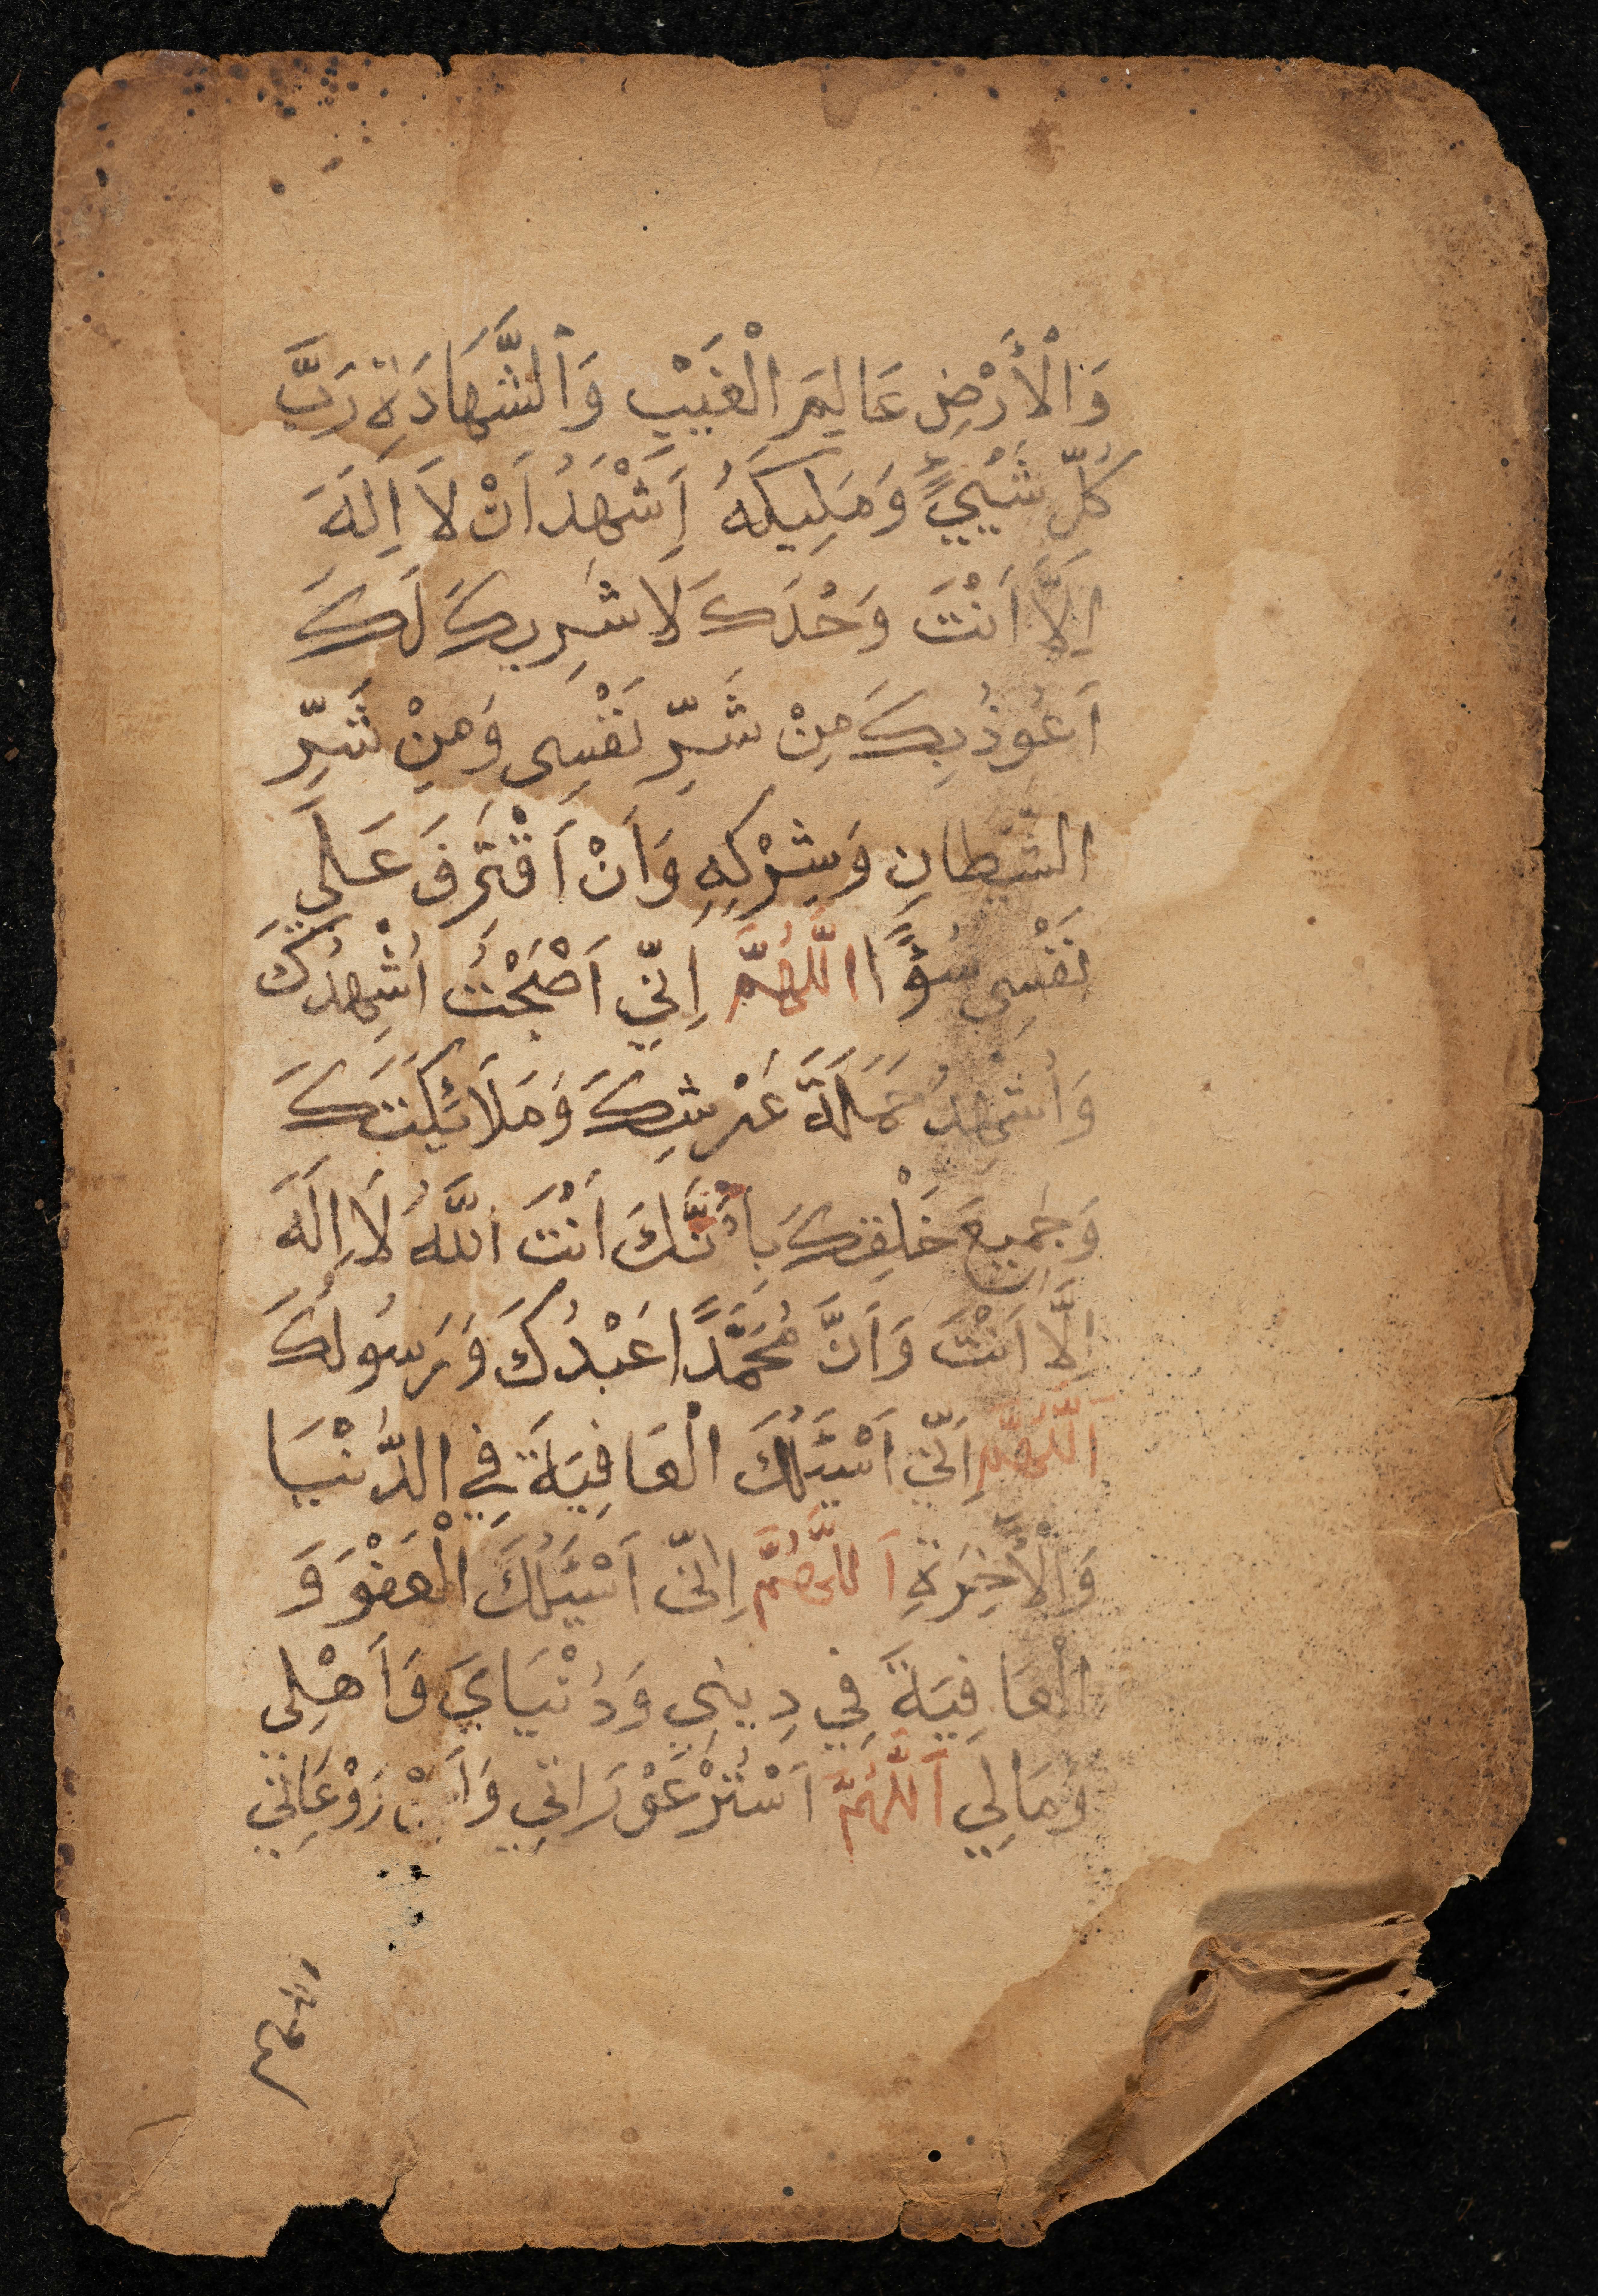 وَالْأَرْضِ عَالِيمَ الْغَيْبِ وَالشَّهَادَةِ رَبَّ
كُلِّ شَيْئٍ وَمَلِيكَهُ اَشْهَدُ اَنْ لَا اِلَهَ
اِلَّا اَنْتَ وَحْدَكَ لَا شَرِيكَ لَكَ
اَعُوذُ بِكَ مِنْ شَرِّ نَفْسِى وَمِنْ شَرِّ
الشَّيْطَانِ وَشِرْكِهِ وَاَنْ اَقْتَرِفَ عَلَي
نَفْسِى سُؤًا اللَّهُمَّ اِنِّي اَصْبَحْتُ اُشْهِدُكَ
وَاُشْهِدُ حَمَلَةَ عَرْشِكَ وَمَلَائِكَتِكَ
وَجَمِيعَ خَلْقِكَ بِأَنَّكَ اَنْتَ اللَّهُ لَا اِلَهَ
اِلَّا اَنْتَ وَاَنَّ مُحَمَّدًا عَبْدُكَ وَرَسُولُكَ
اَللَّهُمَّ اِنِّي اَسْئَلُكَ الْعَافِيَةَ فِي الدُّنْيَا
وَالْأَخِرَةِ اَللَّهُمَّ اِنِّى اَسْئَلُكَ الْعَفْوَ وَ
الْعَافِيَةَ فِي دِينِي وَدُنْيَايَ وَاَهْلِى
وَمَالِي اَللَّهُمَّ اَسْتُرْ عَوْرَاتِي وَ رَوْعَاتِي